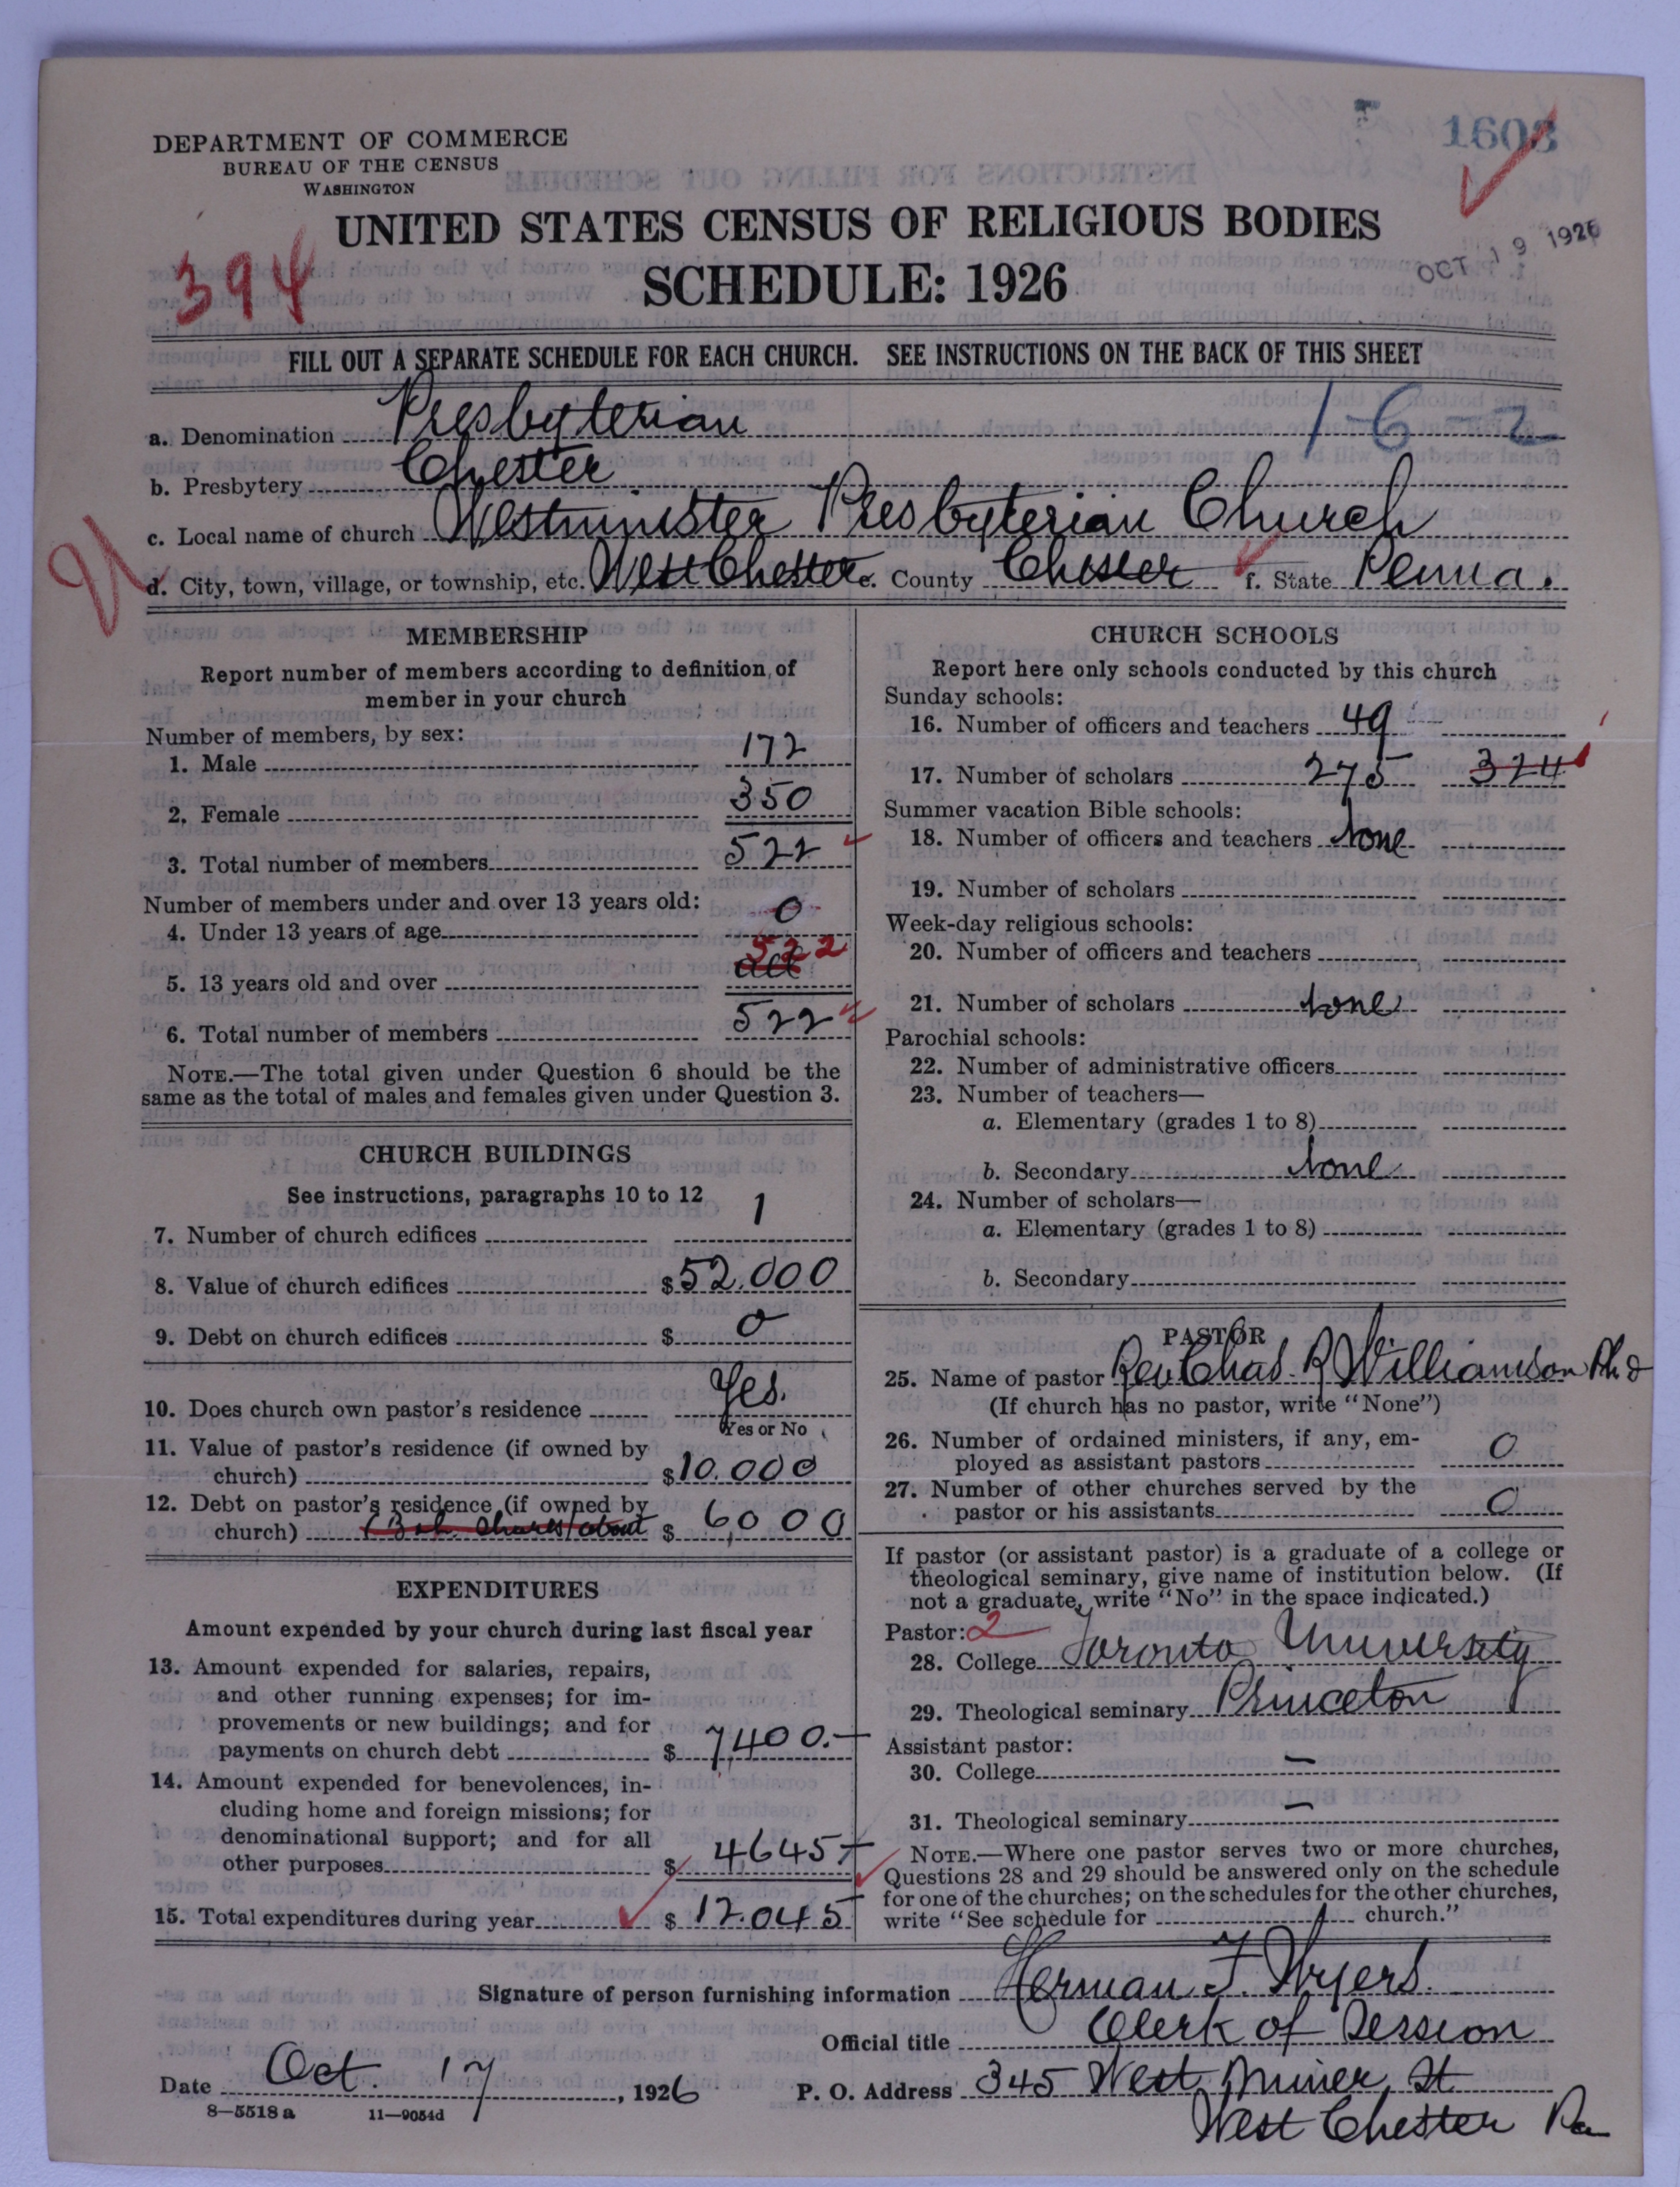 DEPARTMENT OF COMMERCE
BUREAU OF THE CENSUS
WASHINGTON
1603
OCT 19 1926
UNITED STATES CENSUS OF RELIGIOUS BODIES
SCHEDULE: 1926
394
FILL OUT A SEPARATE SCHEDULE FOR EACH CHURCH. SEE INSTRUCTIONS ON THE BACK OF THIS SHEET
1-6-2
a. Denomination Presbyterian
b. Presbytery Chester
c. Local name of church Westminster Presbyterian Church
d. City, town, village, or township, etc. West Chester e. County Chester f. State Penna.
MEMBERSHIP
Report number of members according to definition of
member in your church
Number of members, by sex:
1. Male 172
2. Female 350
3. Total number of members 522
Number of members under and over 13 years old:
4. Under 13 years of age 0
5. 13 years old and over all 522
6. Total number of members 522
NOTE.—The total given under Question 6 should be the
same as the total of males and females given under Question 3.
CHURCH BUILDINGS
See instructions, paragraphs 10 to 12
7. Number of church edifices 1
8. Value of church edifices $52.000
9. Debt on church edifices $ 0
10. Does church own pastor's residence Yes.
Yes or No
11. Value of pastor's residence (if owned by
church) $10.000
12. Debt on pastor's residence (if owned by
church) about $ 6,000
EXPENDITURES
Amount expended by your church during last fiscal year
13. Amount expended for salaries, repairs,
and other running expenses; for im-
provements or new buildings; and for
payments on church debt $ 7,400.—
14. Amount expended for benevolences, in-
cluding home and foreign missions; for
denominational support; and for all
other purposes $ 4645—
15. Total expenditures during year $ 12.045—
CHURCH SCHOOLS
Report here only schools conducted by this church
Sunday schools:
16. Number of officers and teachers 49
17. Number of scholars 275 324
Summer vacation Bible schools:
18. Number of officers and teachers None
19. Number of scholars
Week-day religious schools:
20. Number of officers and teachers
21. Number of scholars None
Parochial schools:
22. Number of administrative officers
23. Number of teachers—
a. Elementary (grades 1 to 8)
b. Secondary None
24. Number of scholars—
a. Elementary (grades 1 to 8)
b. Secondary
PASTOR
25. Name of pastor Rev Chas. R Williamson Ph D
(If church has no pastor, write "None")
26. Number of ordained ministers, if any, em-
ployed as assistant pastors 0
27. Number of other churches served by the
pastor or his assistants 0
If pastor (or assistant pastor) is a graduate of a college or
theological seminary, give name of institution below. (If
not a graduate, write "No" in the space indicated.)
Pastor: 2
28. College Toronto University
29. Theological seminary Princeton
Assistant pastor:
30. College —
31. Theological seminary —
NOTE.—Where one pastor serves two or more churches,
Questions 28 and 29 should be answered only on the schedule
for one of the churches; on the schedules for the other churches,
write "See schedule for church."
Signature of person furnishing information Herman F. Wyers.
Official title Clerk of Session
Date Oct. 17, 1926 P. O. Address 345 West Miner St
8—5518a 11—9054d
West Chester Pa